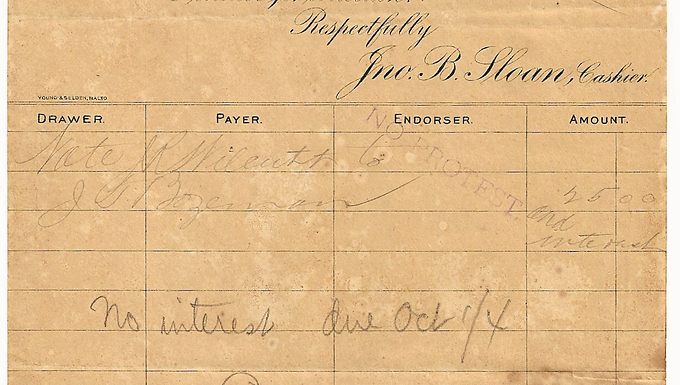 Respectfully
Jno. B. Sloan, Cashier.
YOUNG & SELDEN, BALTO
DRAWER. PAYER. ENDORSER. AMOUNT.
NO PROTEST.
Note to
J G Bozeman 25 00
and
interest
No interest due Oct 1/4